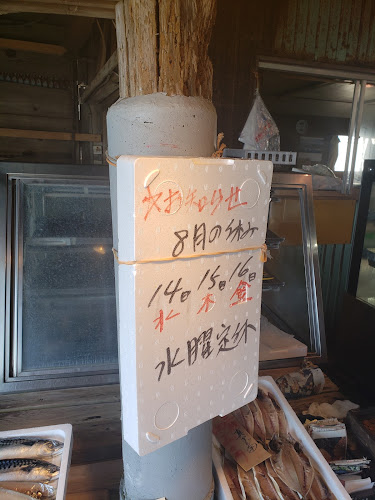 大お知らせ
8月の休み
14日 15日 16日
水 木 金
水曜定休